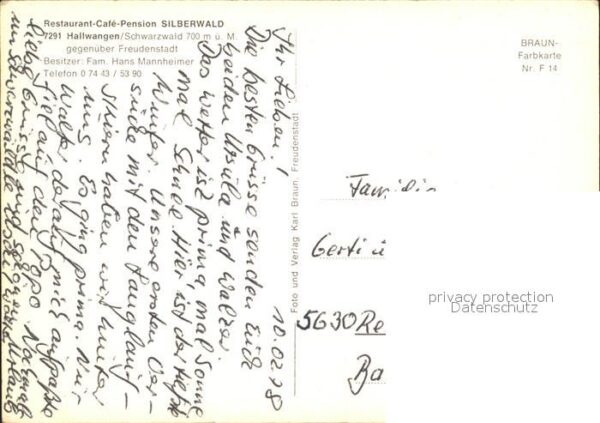 Restaurant-Café-Pension SILBERWALD
7291 Hallwangen/Schwarzwald 700 m ü. M.
gegenüber Freudenstadt
Besitzer: Fam. Hans Mannheimer
Telefon 0 74 43 / 53 90
BRAUN-
Farbkarte
Nr. F 14
Foto und Verlag Karl Braun, Freudenstadt
10.02.78
Ihr Lieben!
Die besten Grüsse senden Euch
beiden Ursula und Walter.
Das Wetter ist prima, mal Sonne
mal Schnee. Hier ist der tiefste
Winter. Unsere ersten Ver-
suche mit den Langlauf-
Skiern haben wir hinter
uns. Es ging prima. Nur
Walter der aufpaßte
fiel auf den Popo. Nochmals
liebe Grüsse und
Familie
Gerti u
5630 Re
Ba
privacy protection
Datenschutz